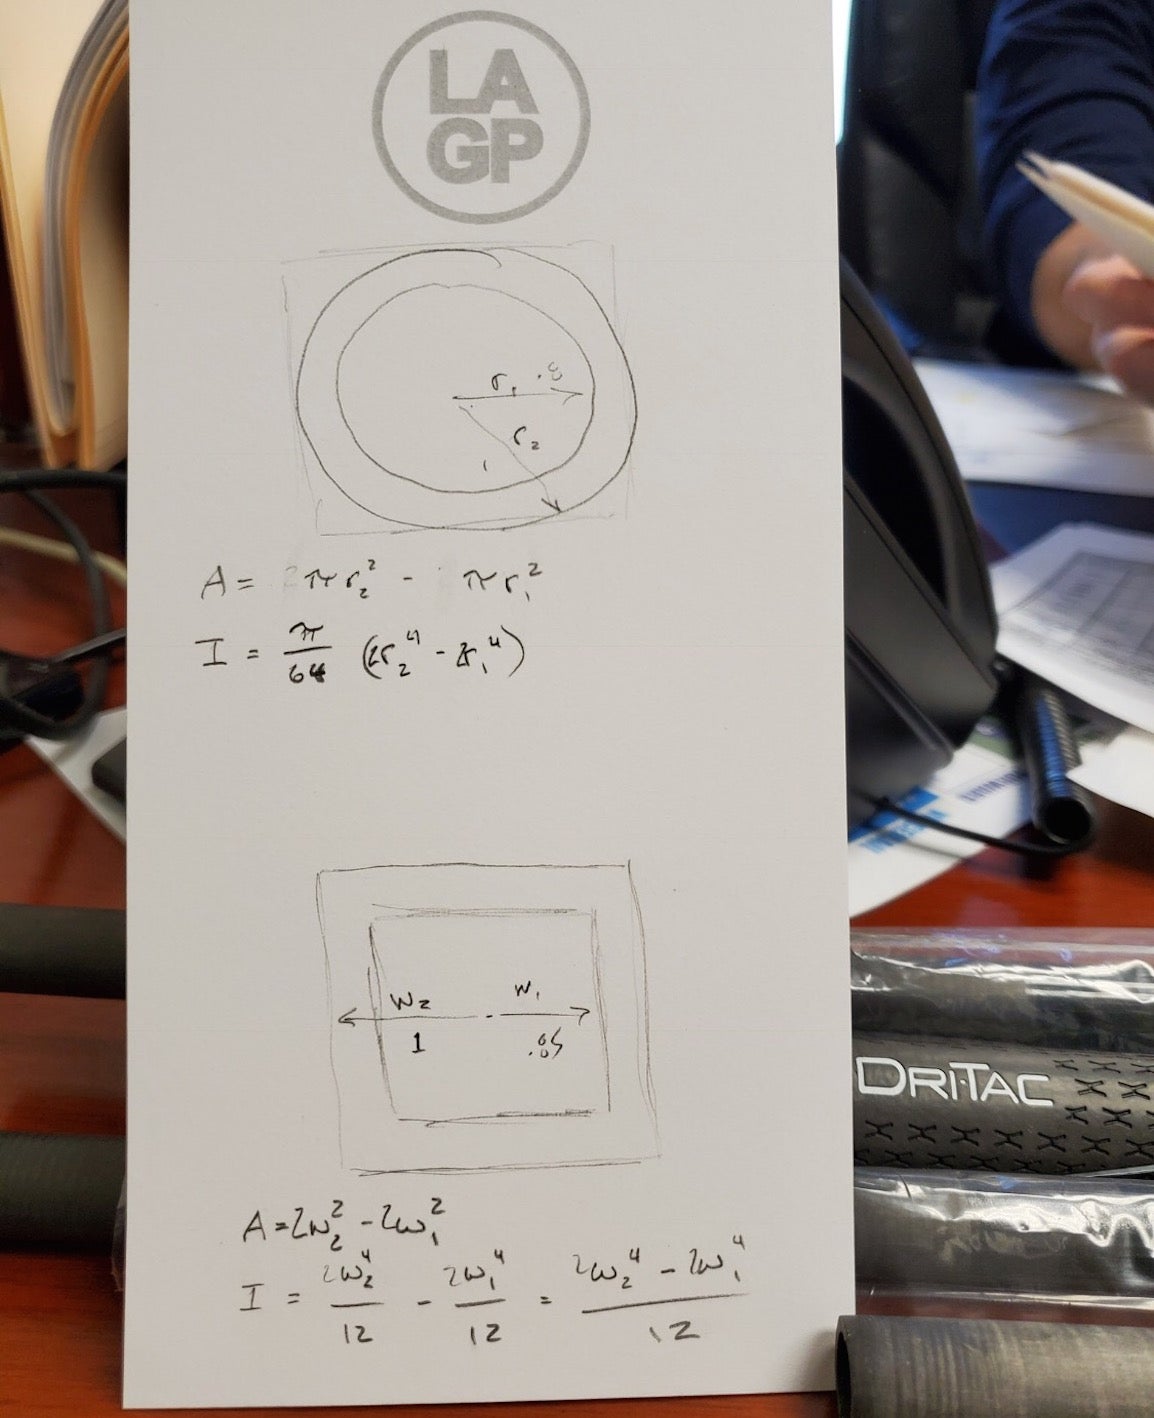 LA
GP
r₁ .8
r₂
1
A = πr₂² - πr₁²
I = π/64 (2r₂⁴ - 2r₁⁴)
W₂ W₁
1 .85
A = 2w₂² - 2w₁²
I = 2w₂⁴/12 - 2w₁⁴/12 = 2w₂⁴ - 2w₁⁴/12
DRI-TAC